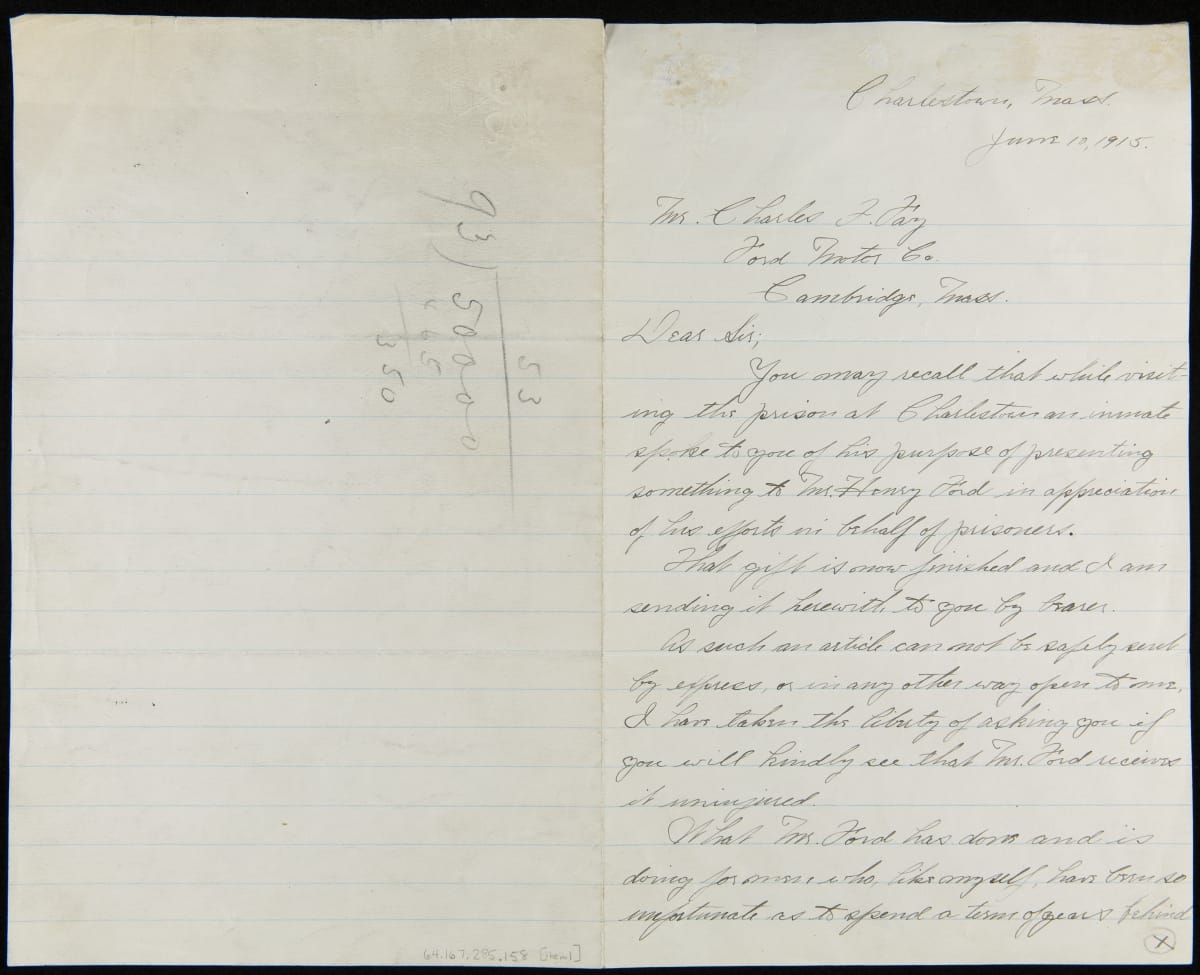 Charlestown, Mass.
June 10, 1915.
Mr. Charles F. Fay
Ford Motor Co.
Cambridge, Mass.
Dear Sir;
You may recall that while visit-
ing the prison at Charlestown an inmate
spoke to you of his purpose of presenting
something to Mr. Henry Ford in appreciation
of his efforts in behalf of prisoners.
That gift is now finished and I am
sending it herewith, to you by bearer.
As such an article can not be safely sent
by express, or in any other way open to me,
I have taken the liberty of asking you if
you will kindly see that Mr. Ford receives
it uninjured.
What Mr. Ford has done and is
doing for men who, like myself, have been so
unfortunate as to spend a term of years behind
X
53
93)50000
465
350
64.167.285.158 [item 1]